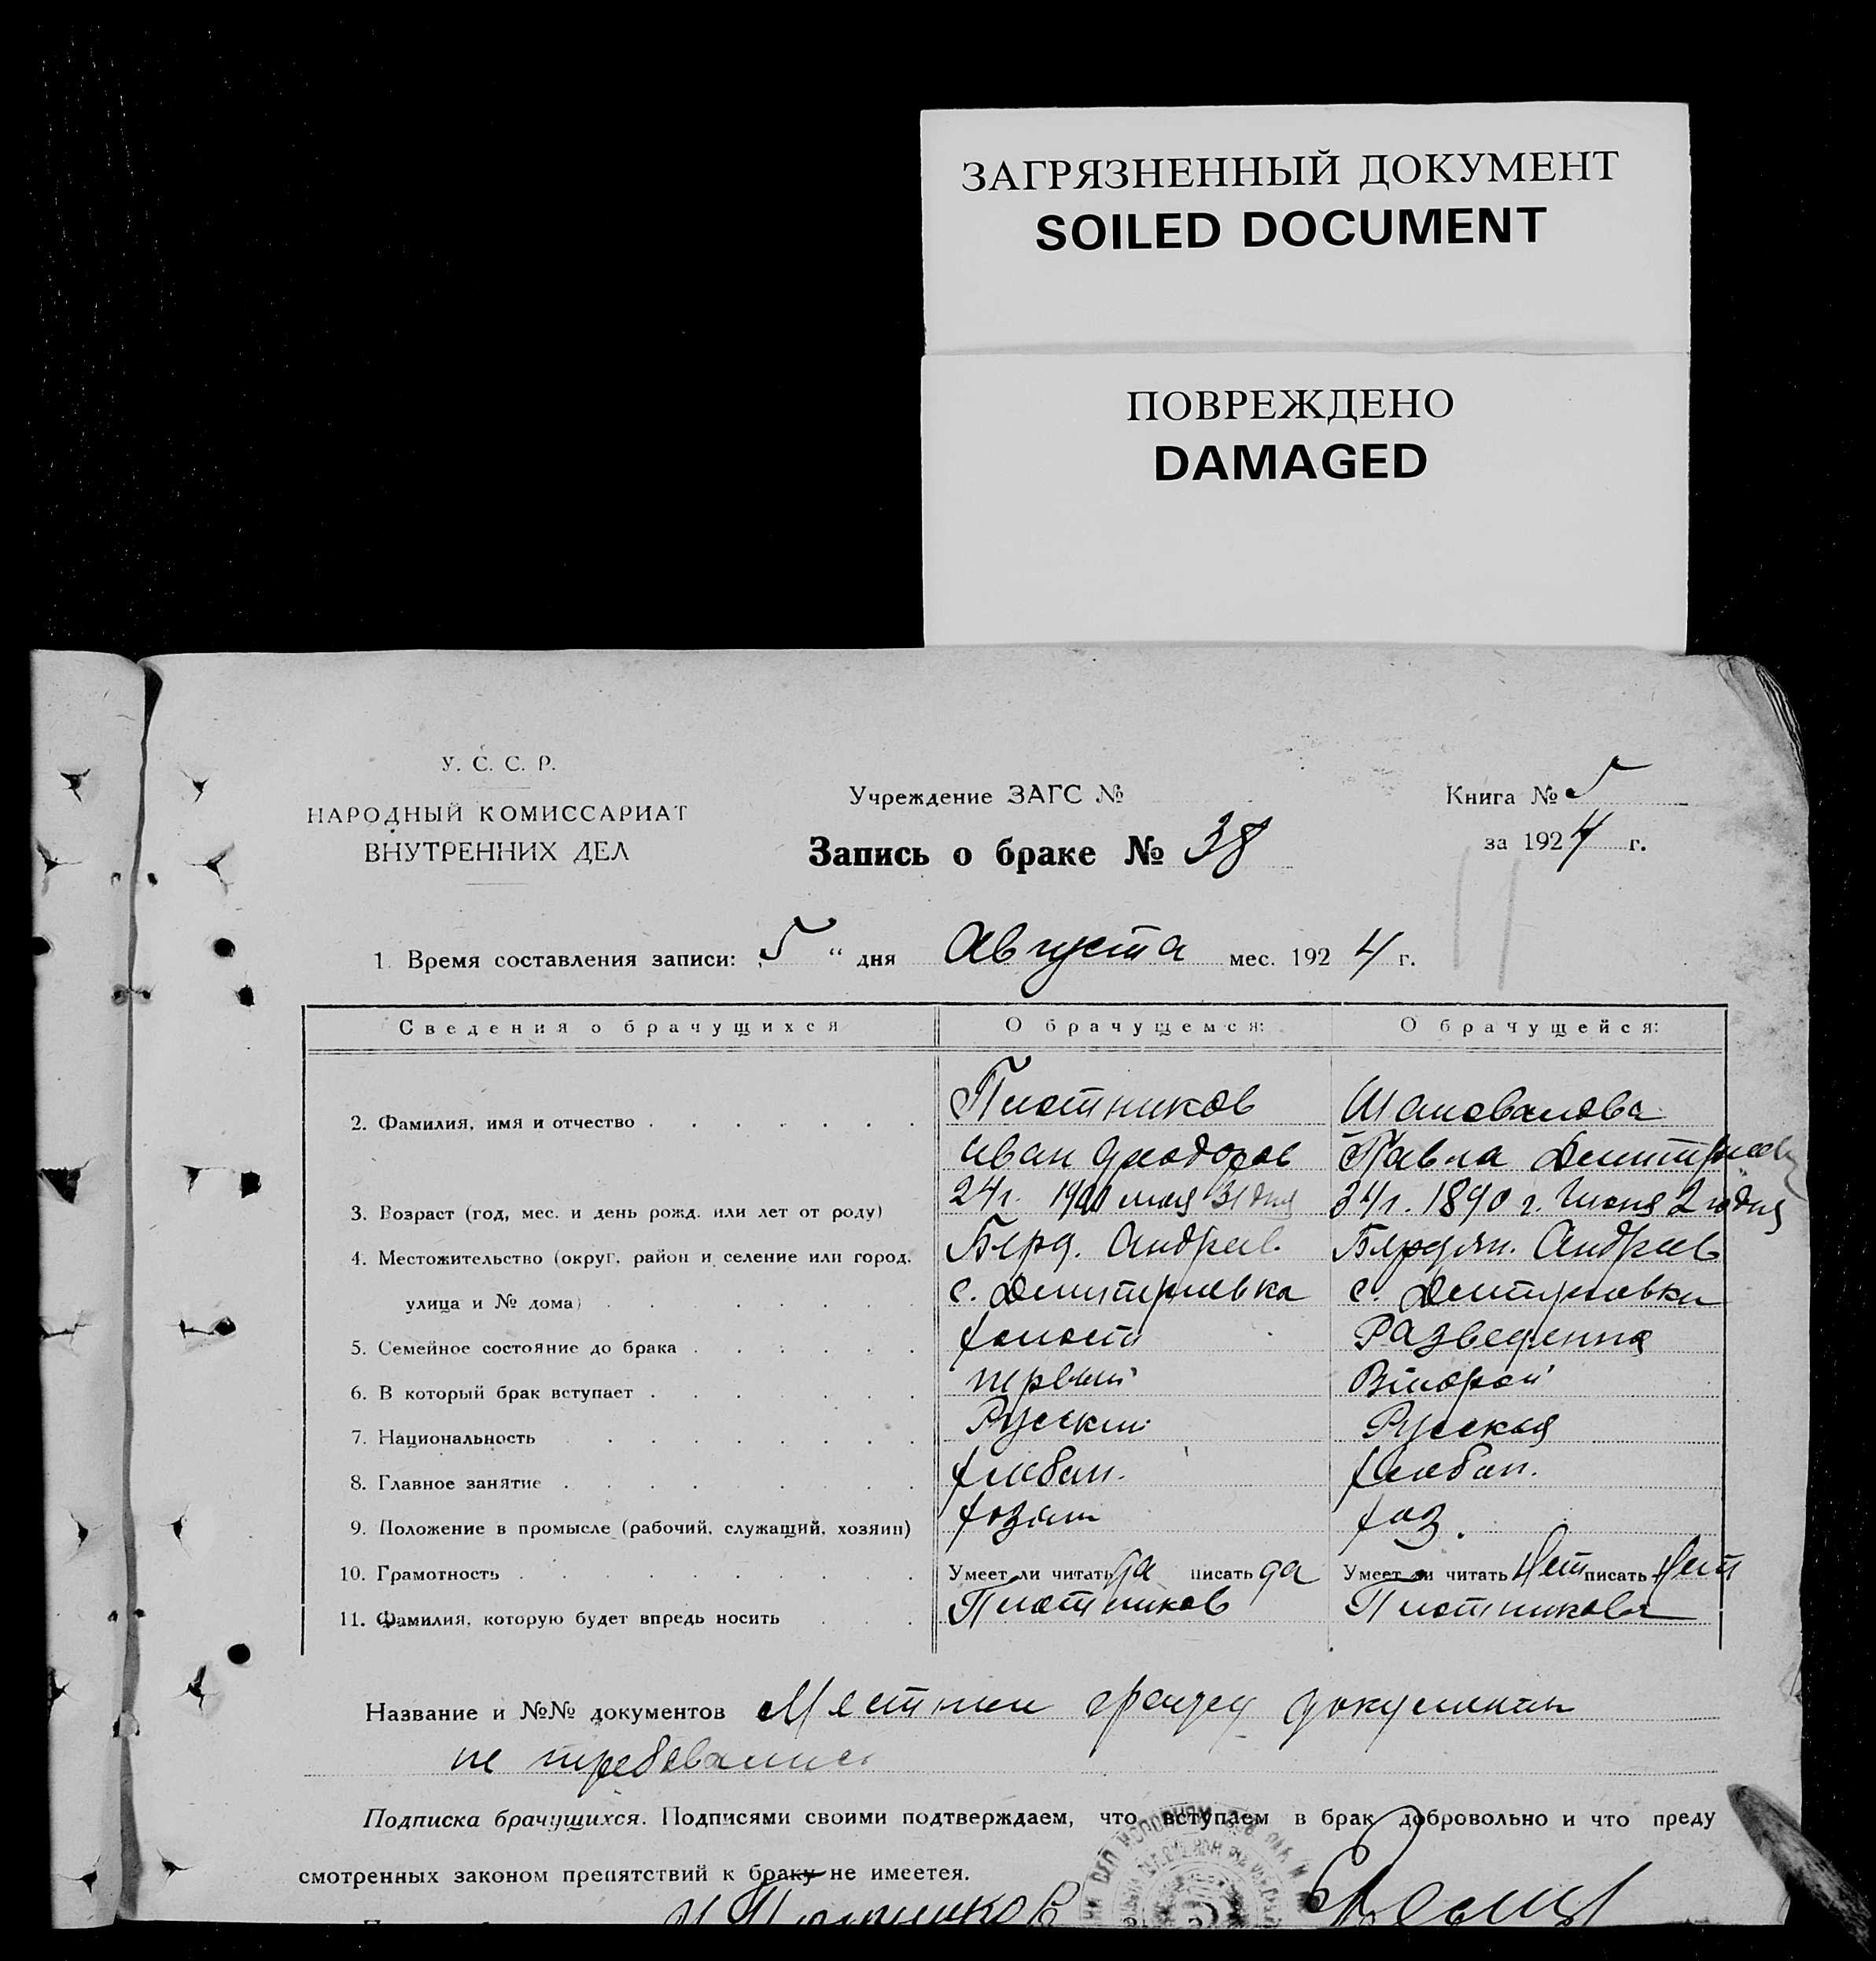 ЗАГРЯЗНЕННЫЙ ДОКУМЕНТ
SOILED DOCUMENT
ПОВРЕЖДЕНО
DAMAGED
У. С. С. Р.
НАРОДНЫЙ КОМИССАРИАТ
ВНУТРЕННИХ ДЕЛ
Учреждение ЗАГС №
Запись о браке № 38
Книга № 5
за 1924 г.
1. Время составления записи: „5“ дня Августа мес. 1924 г.
Сведения о брачущихся О брачущемся: О брачущейся:
2. Фамилия, имя и отчество Плотников Шаповалова
Иван Феодоров Павла Дмитриев
3. Возраст (год, мес. и день рожд. или лет от роду) 24 г. 1900 мая 31 дня 34 г. 1890 г. Июня 2го дня
4. Местожительство (округ, район и селение или город, Берд. Андреев. Бердян. Андреев
улица и № дома) с. Дмитриевка с. Дмитриевки
5. Семейное состояние до брака холост Разведенна
6. В который брак вступает первый Второй
7. Национальность Руский Руская
8. Главное занятие хлебоп. хлебоп.
9. Положение в промысле (рабочий, служащий, хозяин) хозяин хоз.
10. Грамотность Умеет ли читать да писать да Умеет ли читать Нет писать Нет
11. Фамилия, которую будет впредь носить Плотников Плотникова
Название и №№ документов документы
не требовались
Подписка брачущихся. Подписями своими подтверждаем, что вступаем в брак добровольно и что преду
смотренных законом препятствий к браку не имеется.
И Плотников